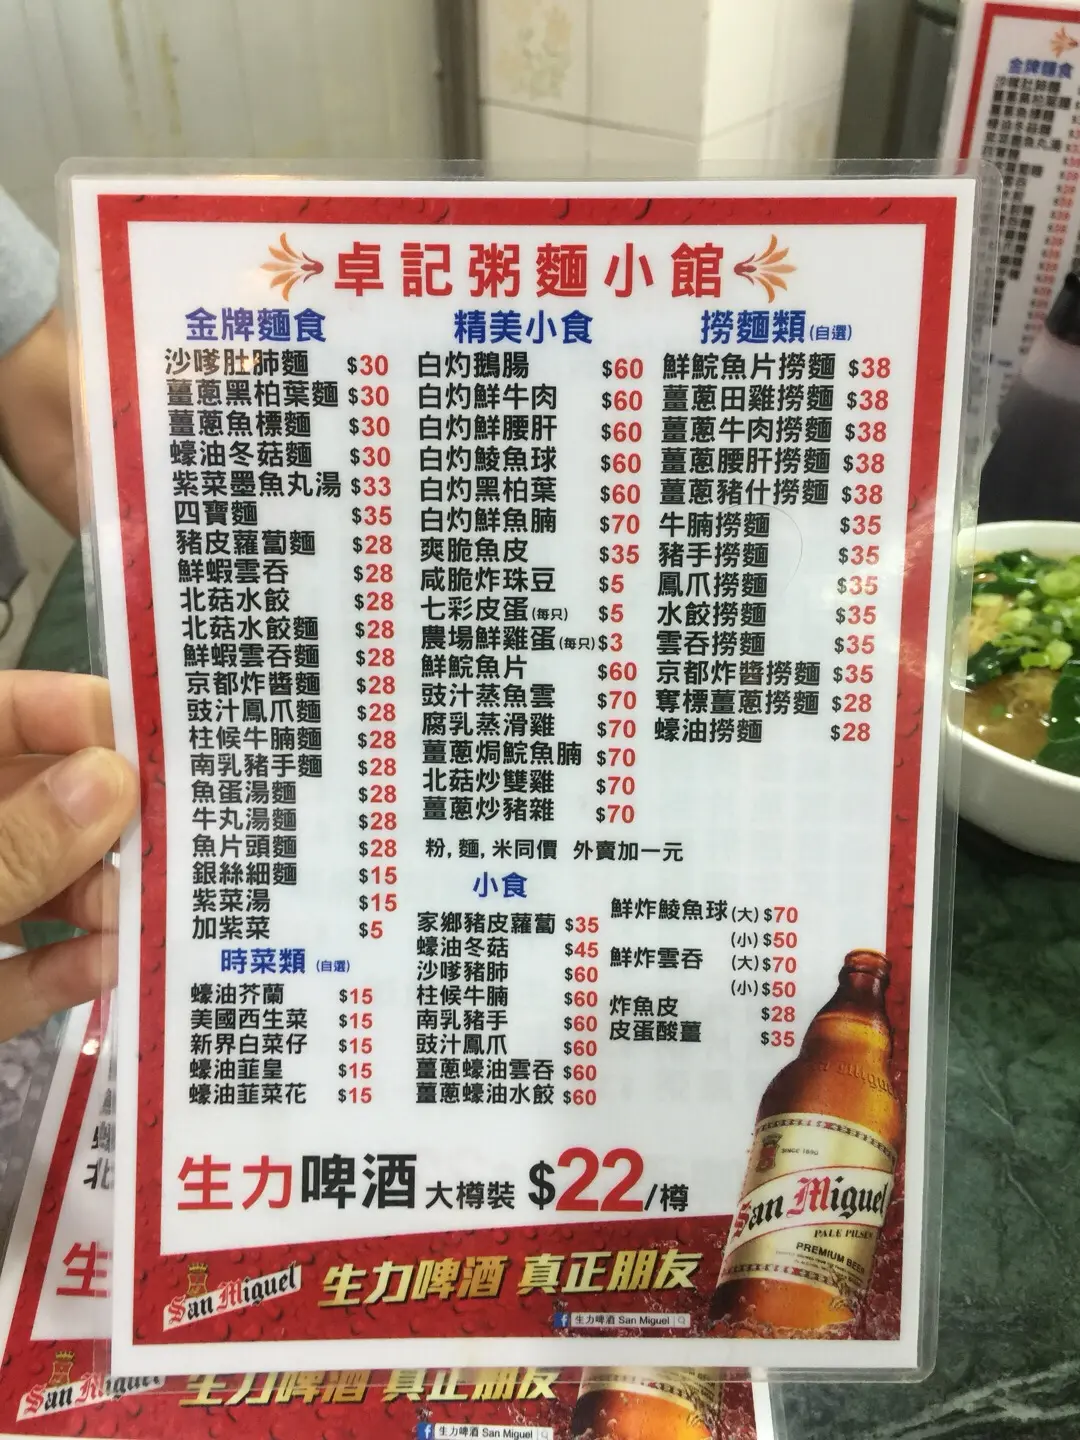 卓記粥麵小館
金牌麵食
沙嗲肚肺麵 $30
薑蔥黑柏葉麵 $30
薑蔥魚標麵 $30
蠔油冬菇麵 $30
紫菜墨魚丸湯 $33
四寶麵 $35
豬皮蘿蔔麵 $28
鮮蝦雲吞 $28
北菇水餃 $28
北菇水餃麵 $28
鮮蝦雲吞麵 $28
京都炸醬麵 $28
豉汁鳳爪麵 $28
柱候牛腩麵 $28
南乳豬手麵 $28
魚蛋湯麵 $28
牛丸湯麵 $28
魚片頭麵 $28
銀絲細麵 $15
紫菜湯 $15
加紫菜 $5
時菜類 (自選)
蠔油芥蘭 $15
美國西生菜 $15
新界白菜仔 $15
蠔油韮皇 $15
蠔油韮菜花 $15
精美小食
白灼鵝腸 $60
白灼鮮牛肉 $60
白灼鮮腰肝 $60
白灼鯪魚球 $60
白灼黑柏葉 $60
白灼鮮魚腩 $70
爽脆魚皮 $35
咸脆炸珠豆 $5
七彩皮蛋(每只) $5
農場鮮雞蛋(每只) $3
鮮鯇魚片 $60
豉汁蒸魚雲 $70
腐乳蒸滑雞 $70
薑蔥焗鯇魚腩 $70
北菇炒雙雞 $70
薑蔥炒豬雜 $70
撈麵類 (自選)
鮮鯇魚片撈麵 $38
薑蔥田雞撈麵 $38
薑蔥牛肉撈麵 $38
薑蔥腰肝撈麵 $38
薑蔥豬什撈麵 $38
牛腩撈麵 $35
豬手撈麵 $35
鳳爪撈麵 $35
水餃撈麵 $35
雲吞撈麵 $35
京都炸醬撈麵 $35
奪標薑蔥撈麵 $28
蠔油撈麵 $28
粉, 麵, 米同價 外賣加一元
小食
家鄉豬皮蘿蔔 $35
蠔油冬菇 $45
沙嗲豬肺 $60
柱候牛腩 $60
南乳豬手 $60
豉汁鳳爪 $60
薑蔥蠔油雲吞 $60
薑蔥蠔油水餃 $60
鮮炸鯪魚球(大) $70
(小) $50
鮮炸雲吞 (大) $70
(小) $50
炸魚皮 $28
皮蛋酸薑 $35
生力啤酒 大樽裝 $22/樽
SINCE 1890
San Miguel
PALE PILSEN
PREMIUM BEER
San Miguel 生力啤酒 真正朋友
f 生力啤酒 San Miguel
金牌麵食
北
生
San Miguel 生力啤酒 真正朋友
f 生力啤酒 San Miguel